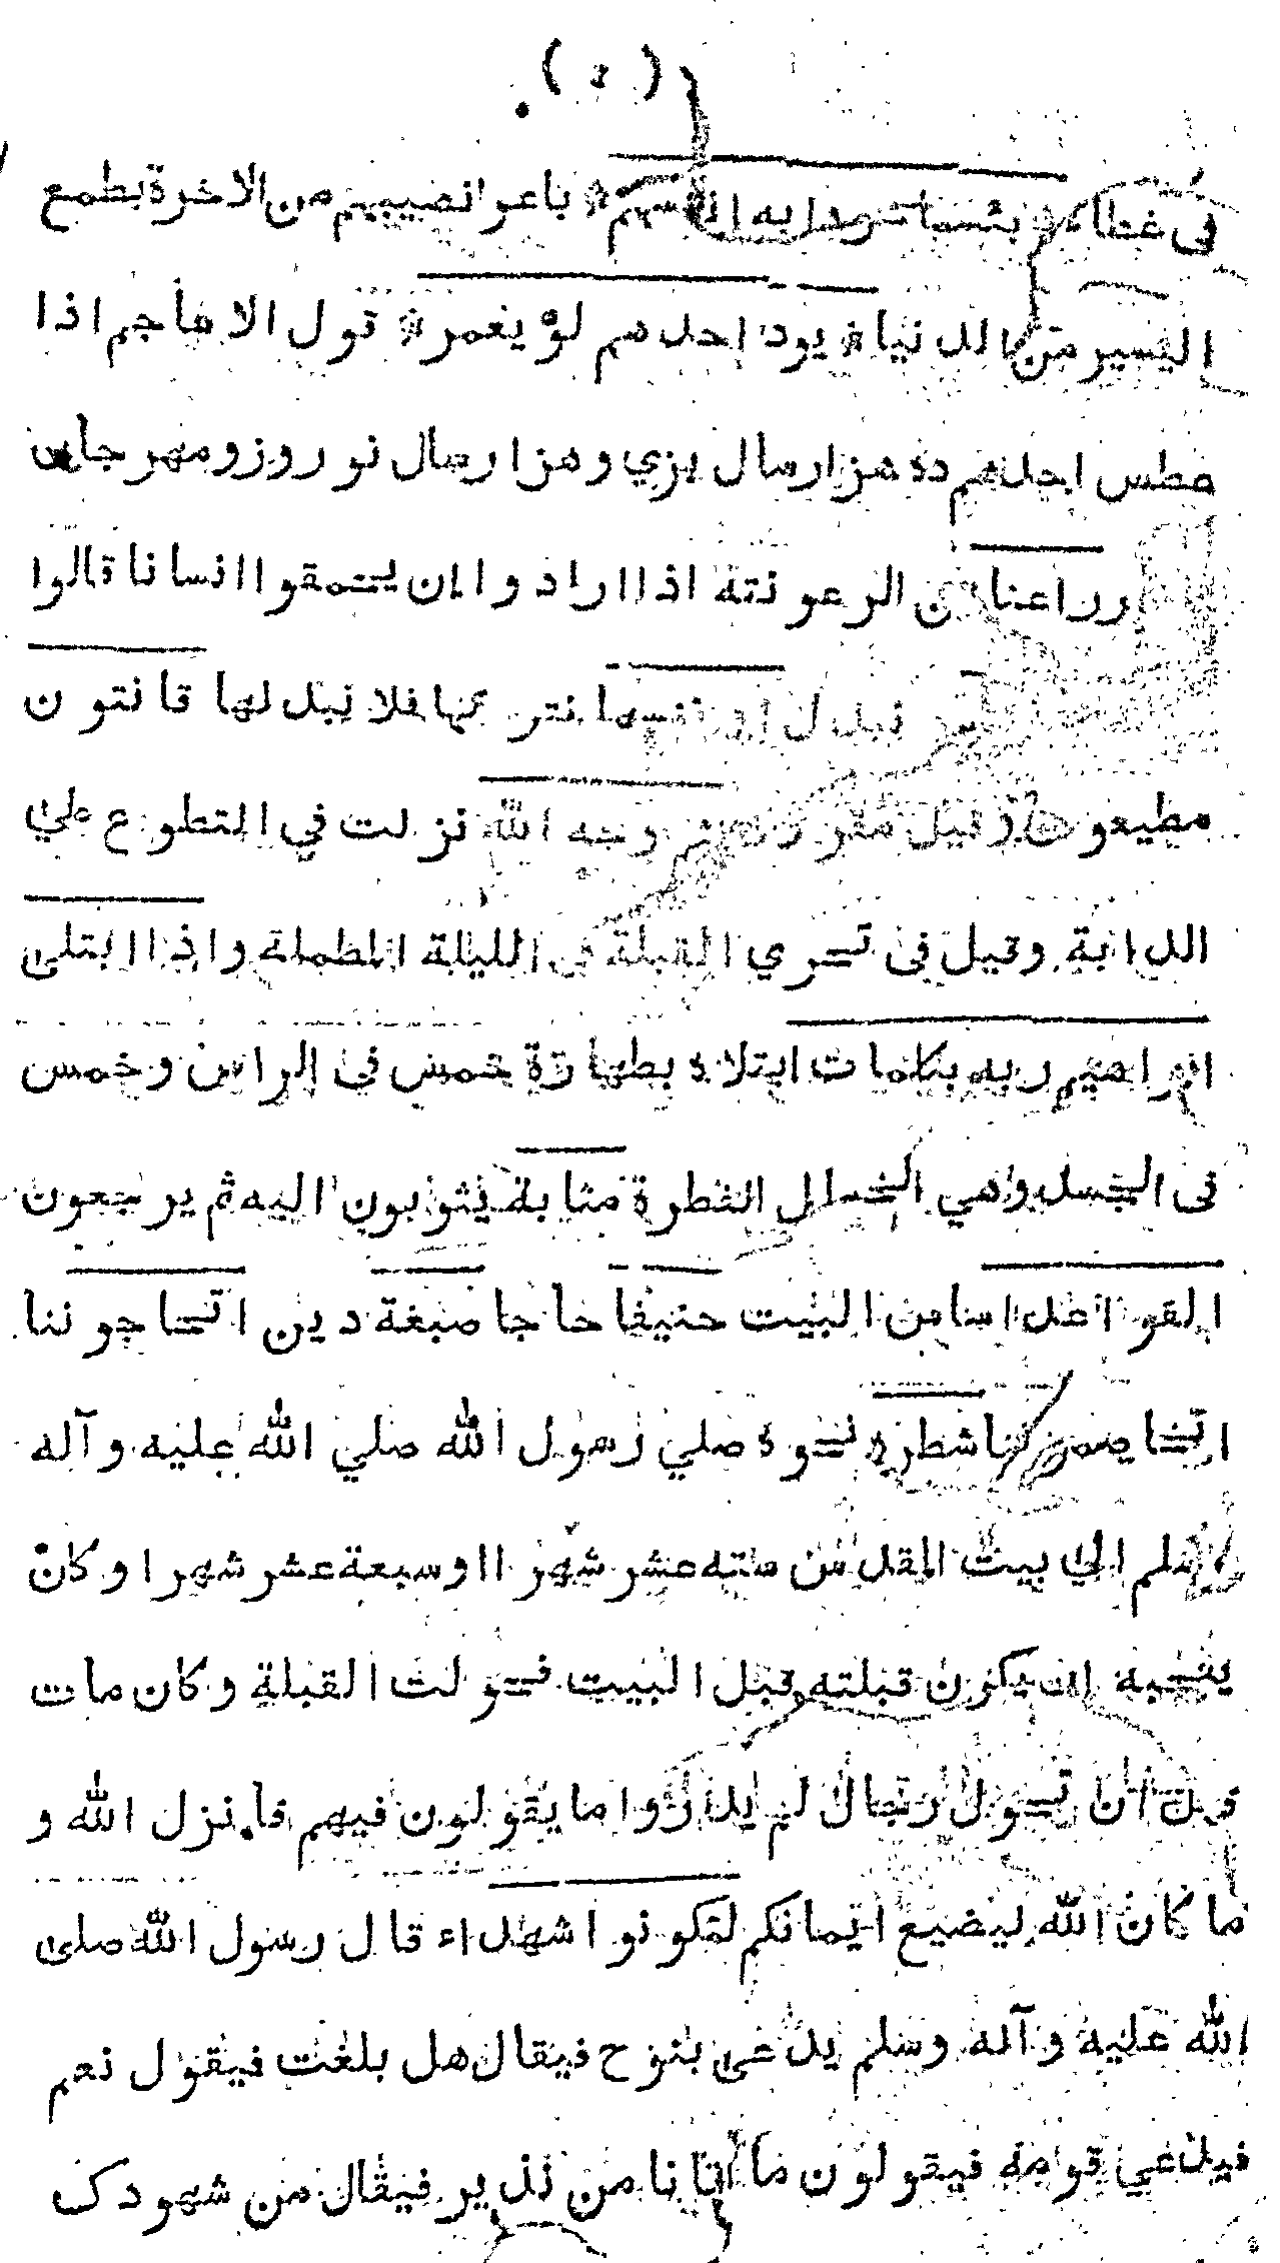 في غطاء * بئسما شروا به انفسهم * باعوا نصيبهم من الاخرة بطمع
اليسير من الدنيا * يود احدهم لو يعمر * قول الاعاجم اذا
عطس احدهم ده هزار سال بزي وهزار سال نو روز ومهرجان
راعنا من الرعونته اذا ارادوا ان يحمقوا انسانا قالوا
نبدل ننسها نتركها فلا نبدلها قانتون
مطيعون وقيل مقرون فثم وجه الله نزلت في التطوع علي
الدابة وقيل في تحري القبلة في الليلة المظلمة واذا ابتلى
ابراهيم ربه بكلمات ابتلاه بطهارة خمس في الراس وخمس
في الجسد وهي الخصال الفطرة مثابة يثوبون اليه ثم يرجعون
القواعد اساس البيت حنيفا حاجا صبغة دين اتحاجوننا
اتخاصموننا شطره نحوه صلي رسول الله صلي الله عليه وآله
وسلم الي بيت المقدس ستة عشر شهرا او سبعة عشر شهرا وكان
يعجبه ان يكون قبلته قبل البيت فحولت القبلة وكان مات
قبل ان تحول رجال لم يدروا ما يقولون فيهم فانزل الله و
ما كان الله ليضيع ايمانكم لتكونوا شهداء قال رسول الله صلى
الله عليه وآله وسلم يدعى بنوح فيقال هل بلغت فيقول نعم
فيدعي قومه فيقولون ما اتانا من نذير فيقال من شهودك